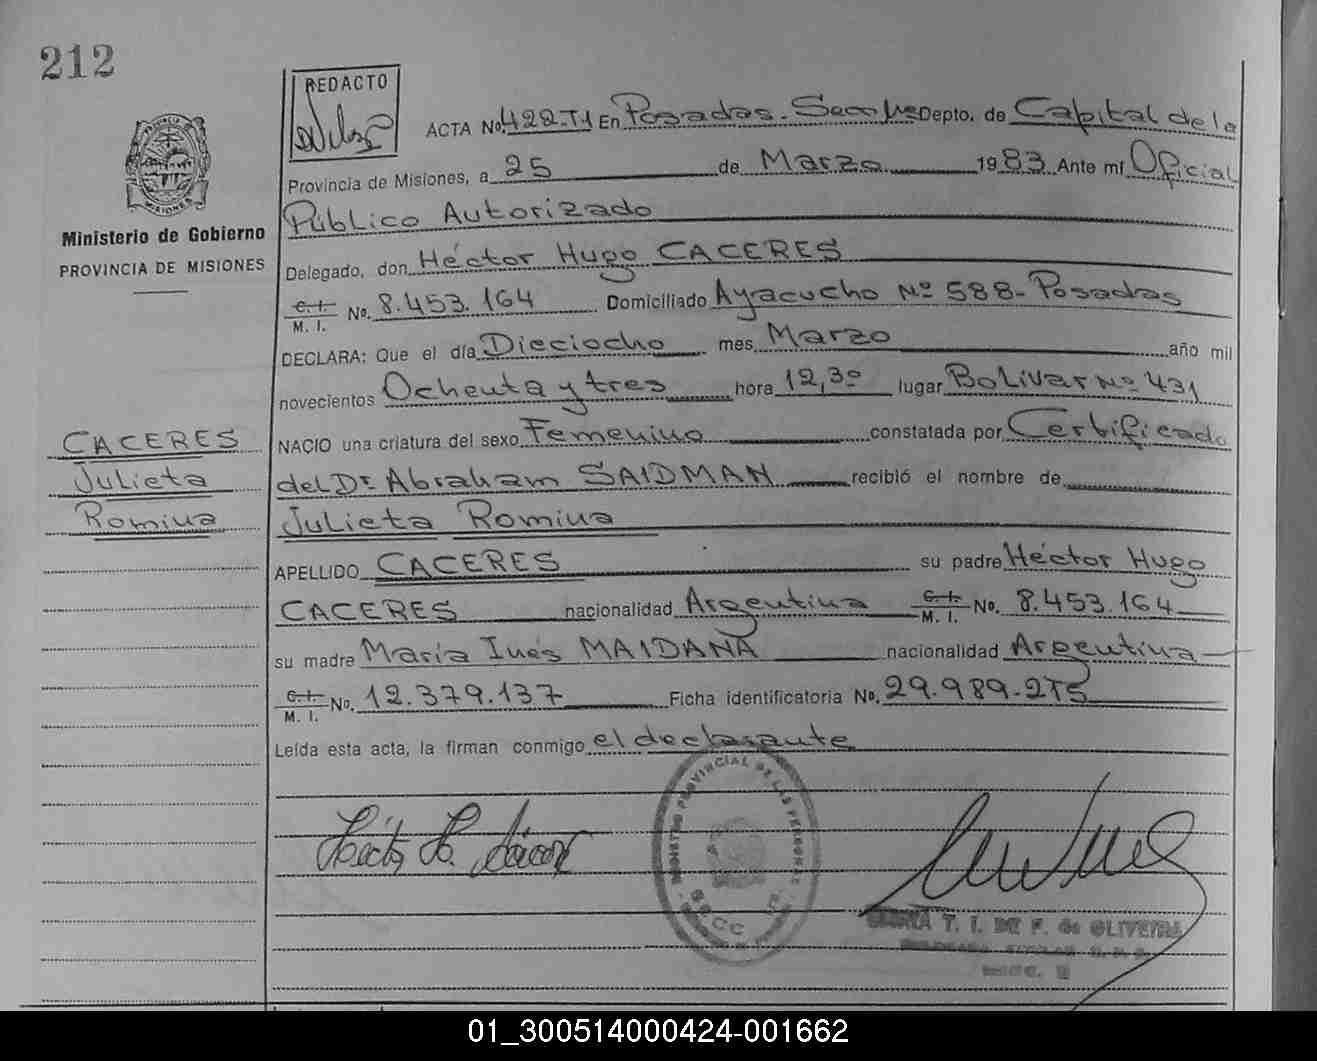 212
REDACTO
ACTA No. 422-T1 En Posadas. Secc Depto. de Capital de la
Provincia de Misiones, a 25 de Marzo 1983 Ante mí Oficial
Público Autorizado
Delegado, don Héctor Hugo CACERES
C. I. M. I. No. 8.453.164 Domiciliado Ayacucho Nº 588- Posadas
DECLARA: Que el día Dieciocho mes Marzo año mil
novecientos Ochenta y tres hora 12,30 lugar Bolivar Nº 431
NACIO una criatura del sexo Femenino constatada por Certificado
del Dr Abraham SAIDMAN recibió el nombre de
Julieta Romina
APELLIDO CACERES su padre Héctor Hugo
CACERES nacionalidad Argentina C. I. M. I. No. 8.453.164
su madre María Inés MAIDANA nacionalidad Argentina
C. I. M. I. No. 12.379.137 Ficha identificatoria No. 29.989-2T5
Leída esta acta, la firman conmigo el declarante
MISIONES
Ministerio de Gobierno
PROVINCIA DE MISIONES
CACERES
Julieta
Romina
PROVINCIAL DE LAS PERSONAS
T. I. DE F. de OLIVEIRA
01_300514000424-001662